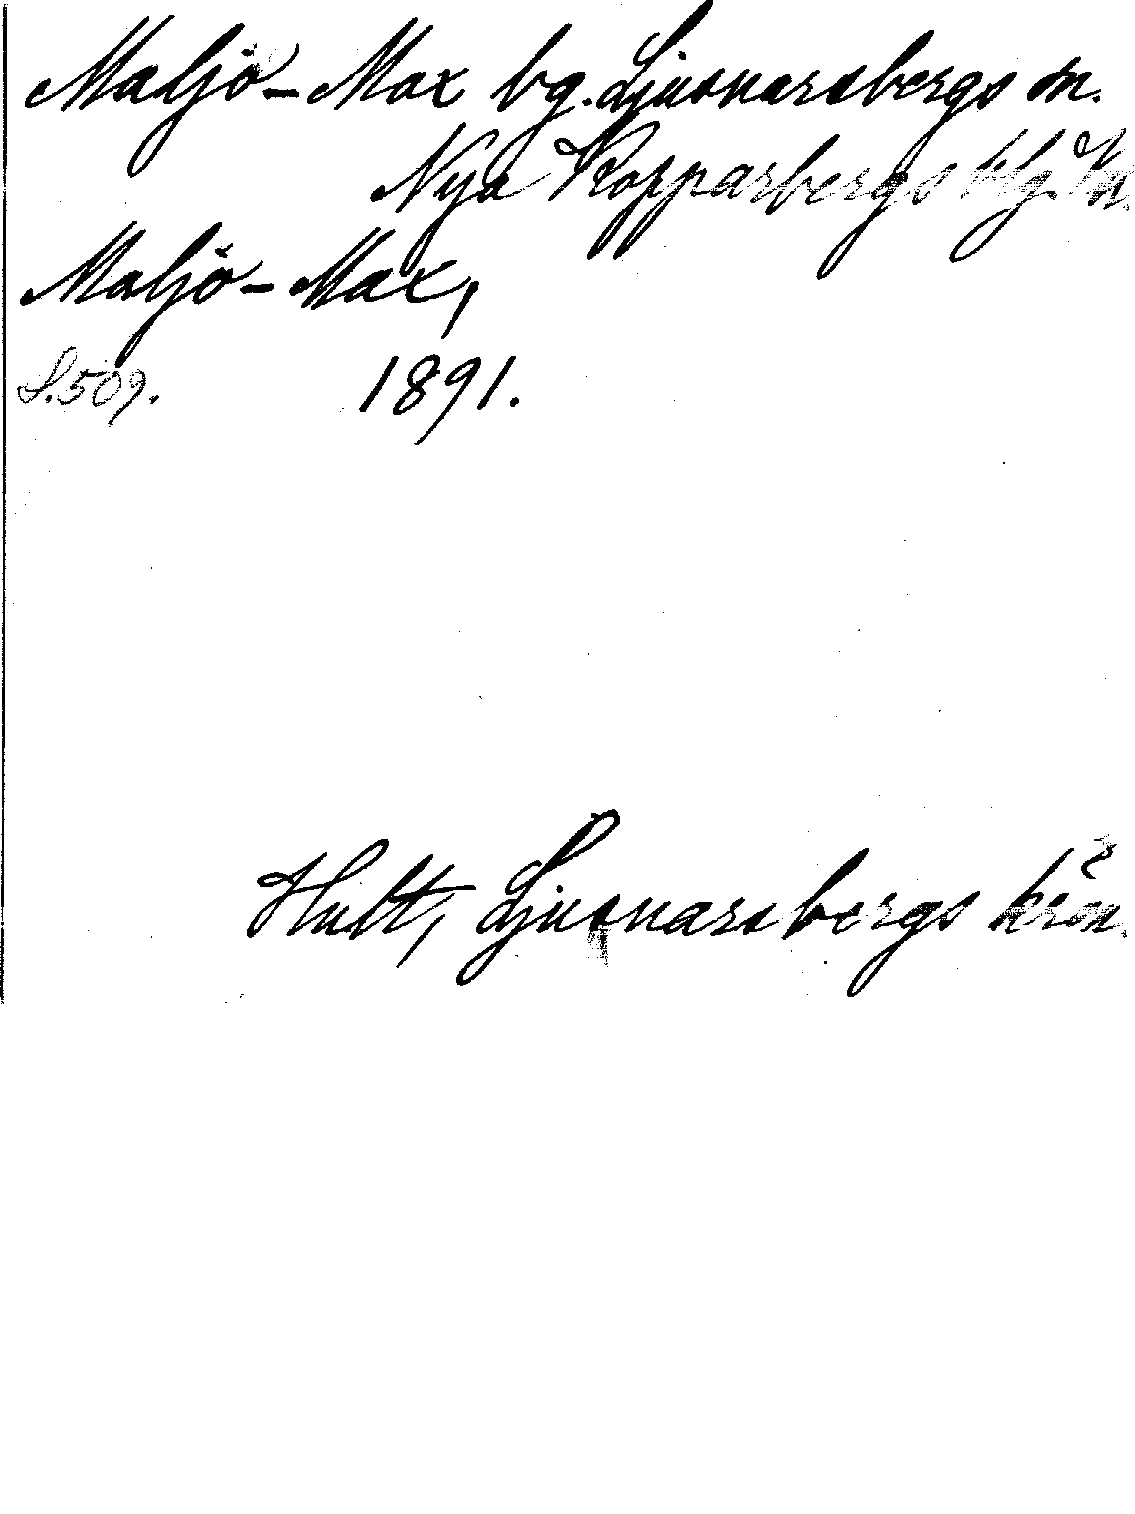 Maljö-Max bg. Ljusnarsbergs sn.
Nya Kopparbergs blg. Ö. l.
Maljö-Max,
S. 509. 1891.
Hult, Ljusnarsbergs krön.